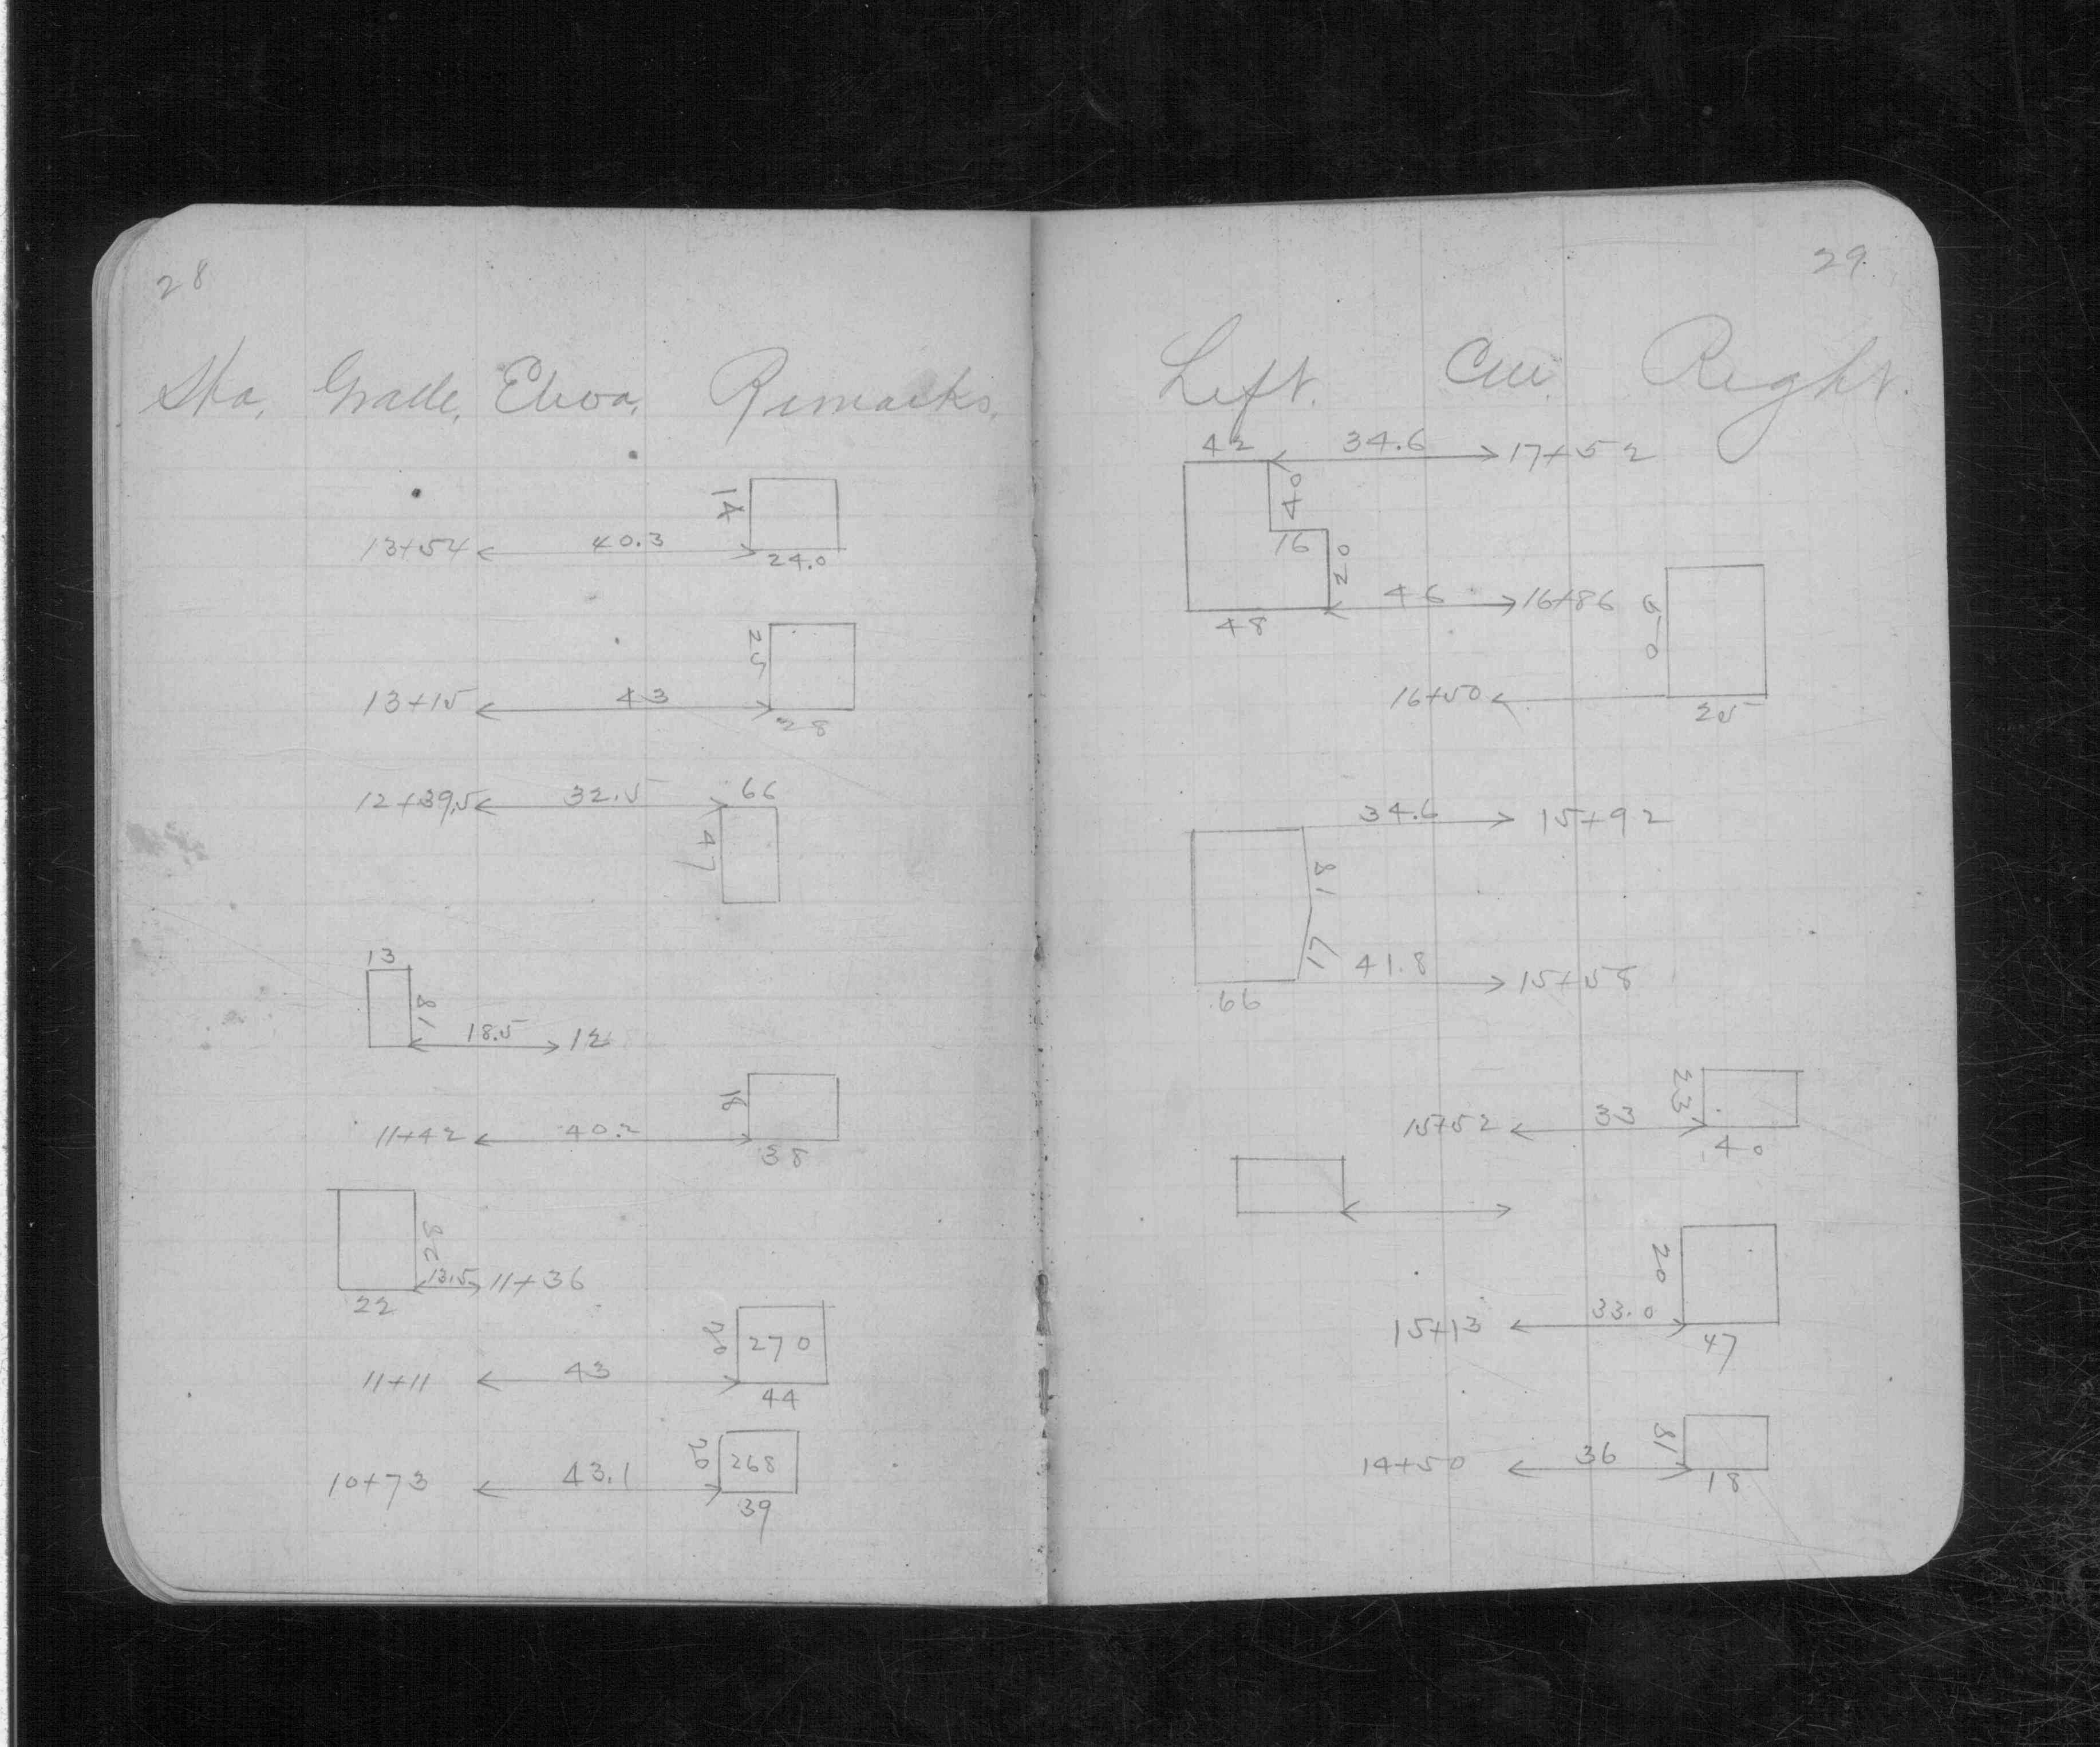 28
Sta. Grade. Eleva. Remarks.
14
13+54 40.3 24.0
25
13+15 43
28
12+39.5 32.5 66
47
13
18
18.5 12
18
11+42 40.2
38
28
13.5 11+36
22
20 270
11+11 43
44
20 268
10+73 43.1
39
29.
Left. Cen. Right.
42 34.6 17+52
40
16 20
46 16+86
48
50
16+50
25
34.6 15+92
18
17
41.8 15+58
66
23
15+52 33
40
20
15+13 33.0
47
18
14+50 36
18